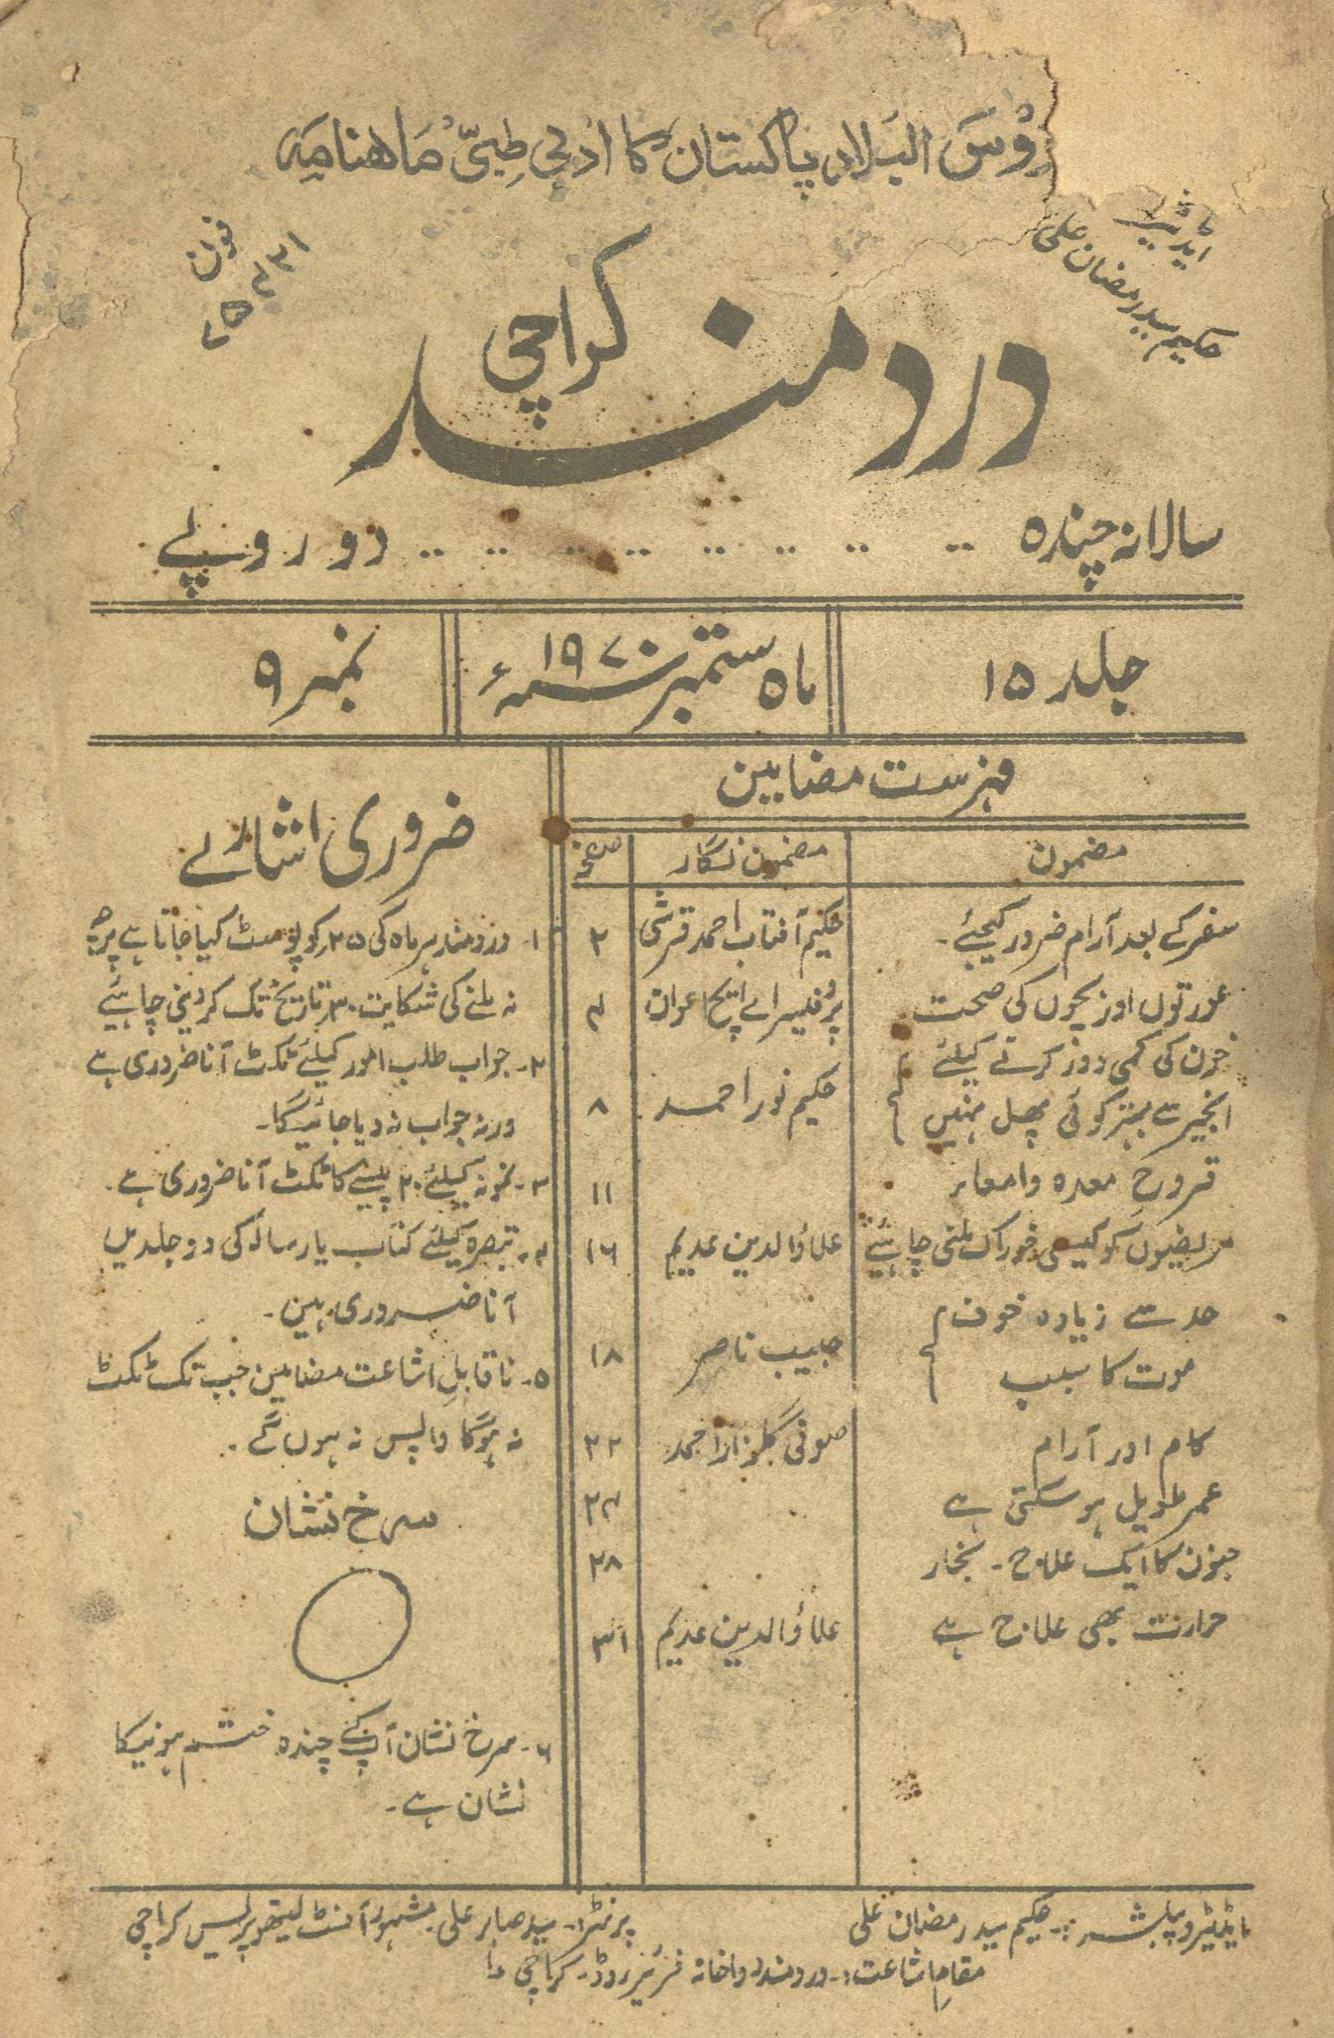 وُسَ البَلاد پاکستان کا ادبی طبّی مَاھنامَہ
ایڈیٹر
حکیم سید رمضان علی
فون
۷۵۴۳۱
درد مند کراچی
سالانہ چندہ .. .. .. .. .. .. .. .. دو روپے
جلد ۱۵
ماہ ستمبر ۱۹۷۰ء
نمبر ۹
فہرست مضامین
مضمون مضمون نگار صفحہ
سفر کے بعد آرام ضرور کیجئے۔ حکیم آفتاب احمد قرشی ۲
عورتوں اور بچوں کی صحت پروفیسر اے ایچ اعوان ۴
خون کی کمی دور کرنے کیلئے
انجیر سے بہتر کوئی پھل نہیں حکیم نور احمد ۸
قروحِ معدہ و امعاء ۱۱
مریضوں کو کیسی خوراک ملنی چاہئیے علاؤالدین عدیم ۱۶
حد سے زیادہ خوف
موت کا سبب حبیب ناصر ۱۸
کام اور آرام صوفی گلزار احمد ۲۲
عمر طویل ہو سکتی ہے ۲۴
جنون کا ایک علاج۔ بخار ۲۸
حرارت بھی علاج ہے علاؤالدین عدیم ۳۱
ضروری اشارے
۱۔ دردمند ہر ماہ کی ۲۵ کو پوسٹ کیا جاتا ہے پرچہ
نہ ملنے کی شکایت ۳۰ تاریخ تک کر دینی چاہئیے
۲۔ جواب طلب امور کیلئے ٹکٹ آنا ضروری ہے
ورنہ جواب نہ دیا جائیگا۔
۳۔ نمونہ کیلئے ۲۰ پیسے کا ٹکٹ آنا ضروری ہے۔
۴۔ تبصرہ کیلئے کتاب یا رسالہ کی دو جلدیں
آنا ضروری ہیں۔
۵۔ ناقابلِ اشاعت مضامین جب تک ٹکٹ
نہ ہوگا واپس نہ ہوں گے۔
سرخ نشان
۶۔ سرخ نشان آپ کے چندہ ختم ہونیکا
نشان ہے۔
ایڈیٹر و پبلشر :۔ حکیم سید رمضان علی پرنٹر :۔ سید صابر علی۔ مشہور آفسٹ لیتھو پریس کراچی
مقامِ اشاعت :۔ دردمند دواخانہ فریئر روڈ۔ کراچی ۱